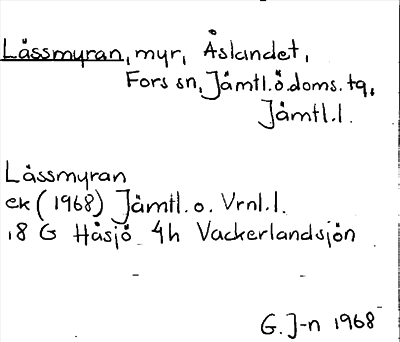 Låssmyran, myr, Åslandet,
Fors sn, Jämtl.ö.doms.tg,
Jämtl.l.
Låssmyran
ek (1968) Jämtl. o. Vrnl.l.
18 G Håsjö 4h Vackerlandsjön
G.J-n 1968